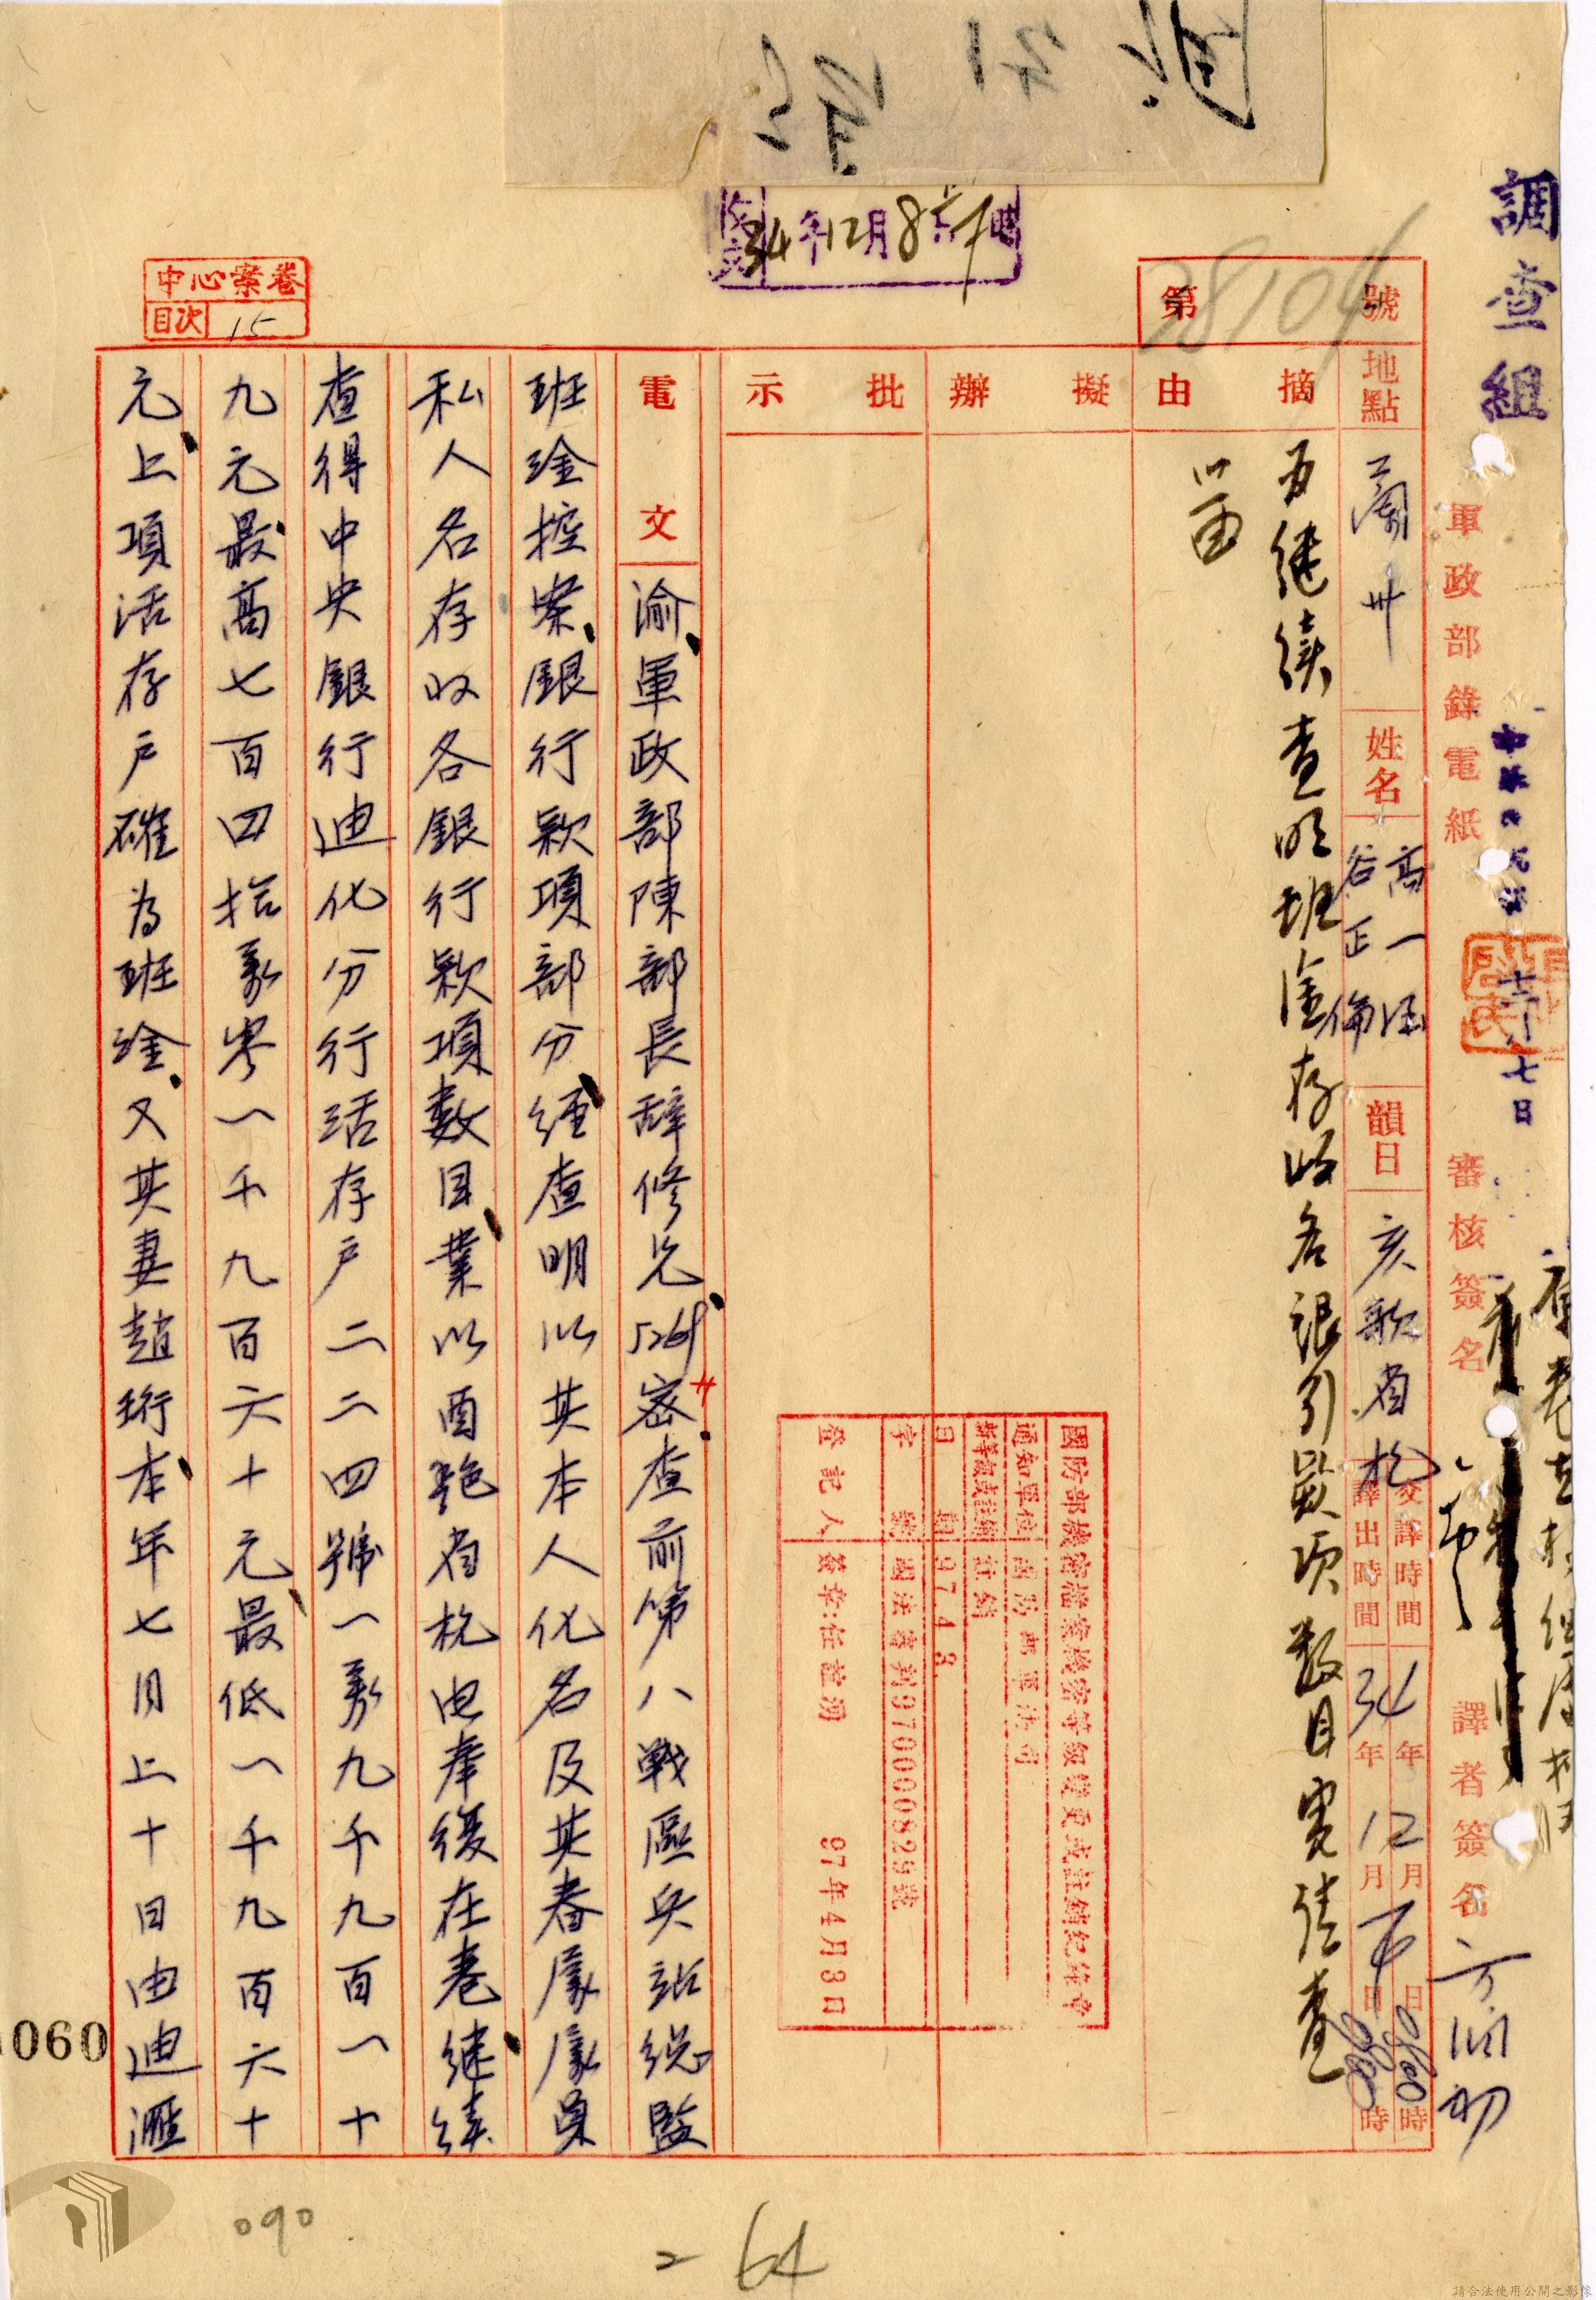 調查組
軍政部錄電紙
審核簽名
譯者簽名
第28104號
地點
蘭州
姓名
高一涵
谷正倫
韻日
亥歌省杭
交譯時間 34年12月7日0800時
譯出時間
年 月 日 時
摘由
為繼續查明班淦存收各銀行款項數目電請查
照由
擬辦
批示
34年12月8
中心案卷
目次 15
國防部機密檔案機密等級變更或註銷紀錄章
通知單位 國防部軍法司
新等級或註銷 註銷
日期 97.4.3.
字號 國法審判970000829號
登記人 簽章:任
97年4月3日
電文
渝軍政部陳部長辭修兄5269密查前第八戰區兵站總監
班淦控案銀行款項部分經查明以其本人化名及其眷屬屬員
私人名存收各銀行款項數目業以酉艷省杭電奉復在卷繼續
查得中央銀行迪化分行活存戶二二四號一萬九千九百一十
九元最高七百四拾萬零一千九百六十元最低一千九百六十
元上項活存戶確為班淦又其妻趙珩本年七月上十日由迪滙
060
090
=64
請合法使用公開之影像